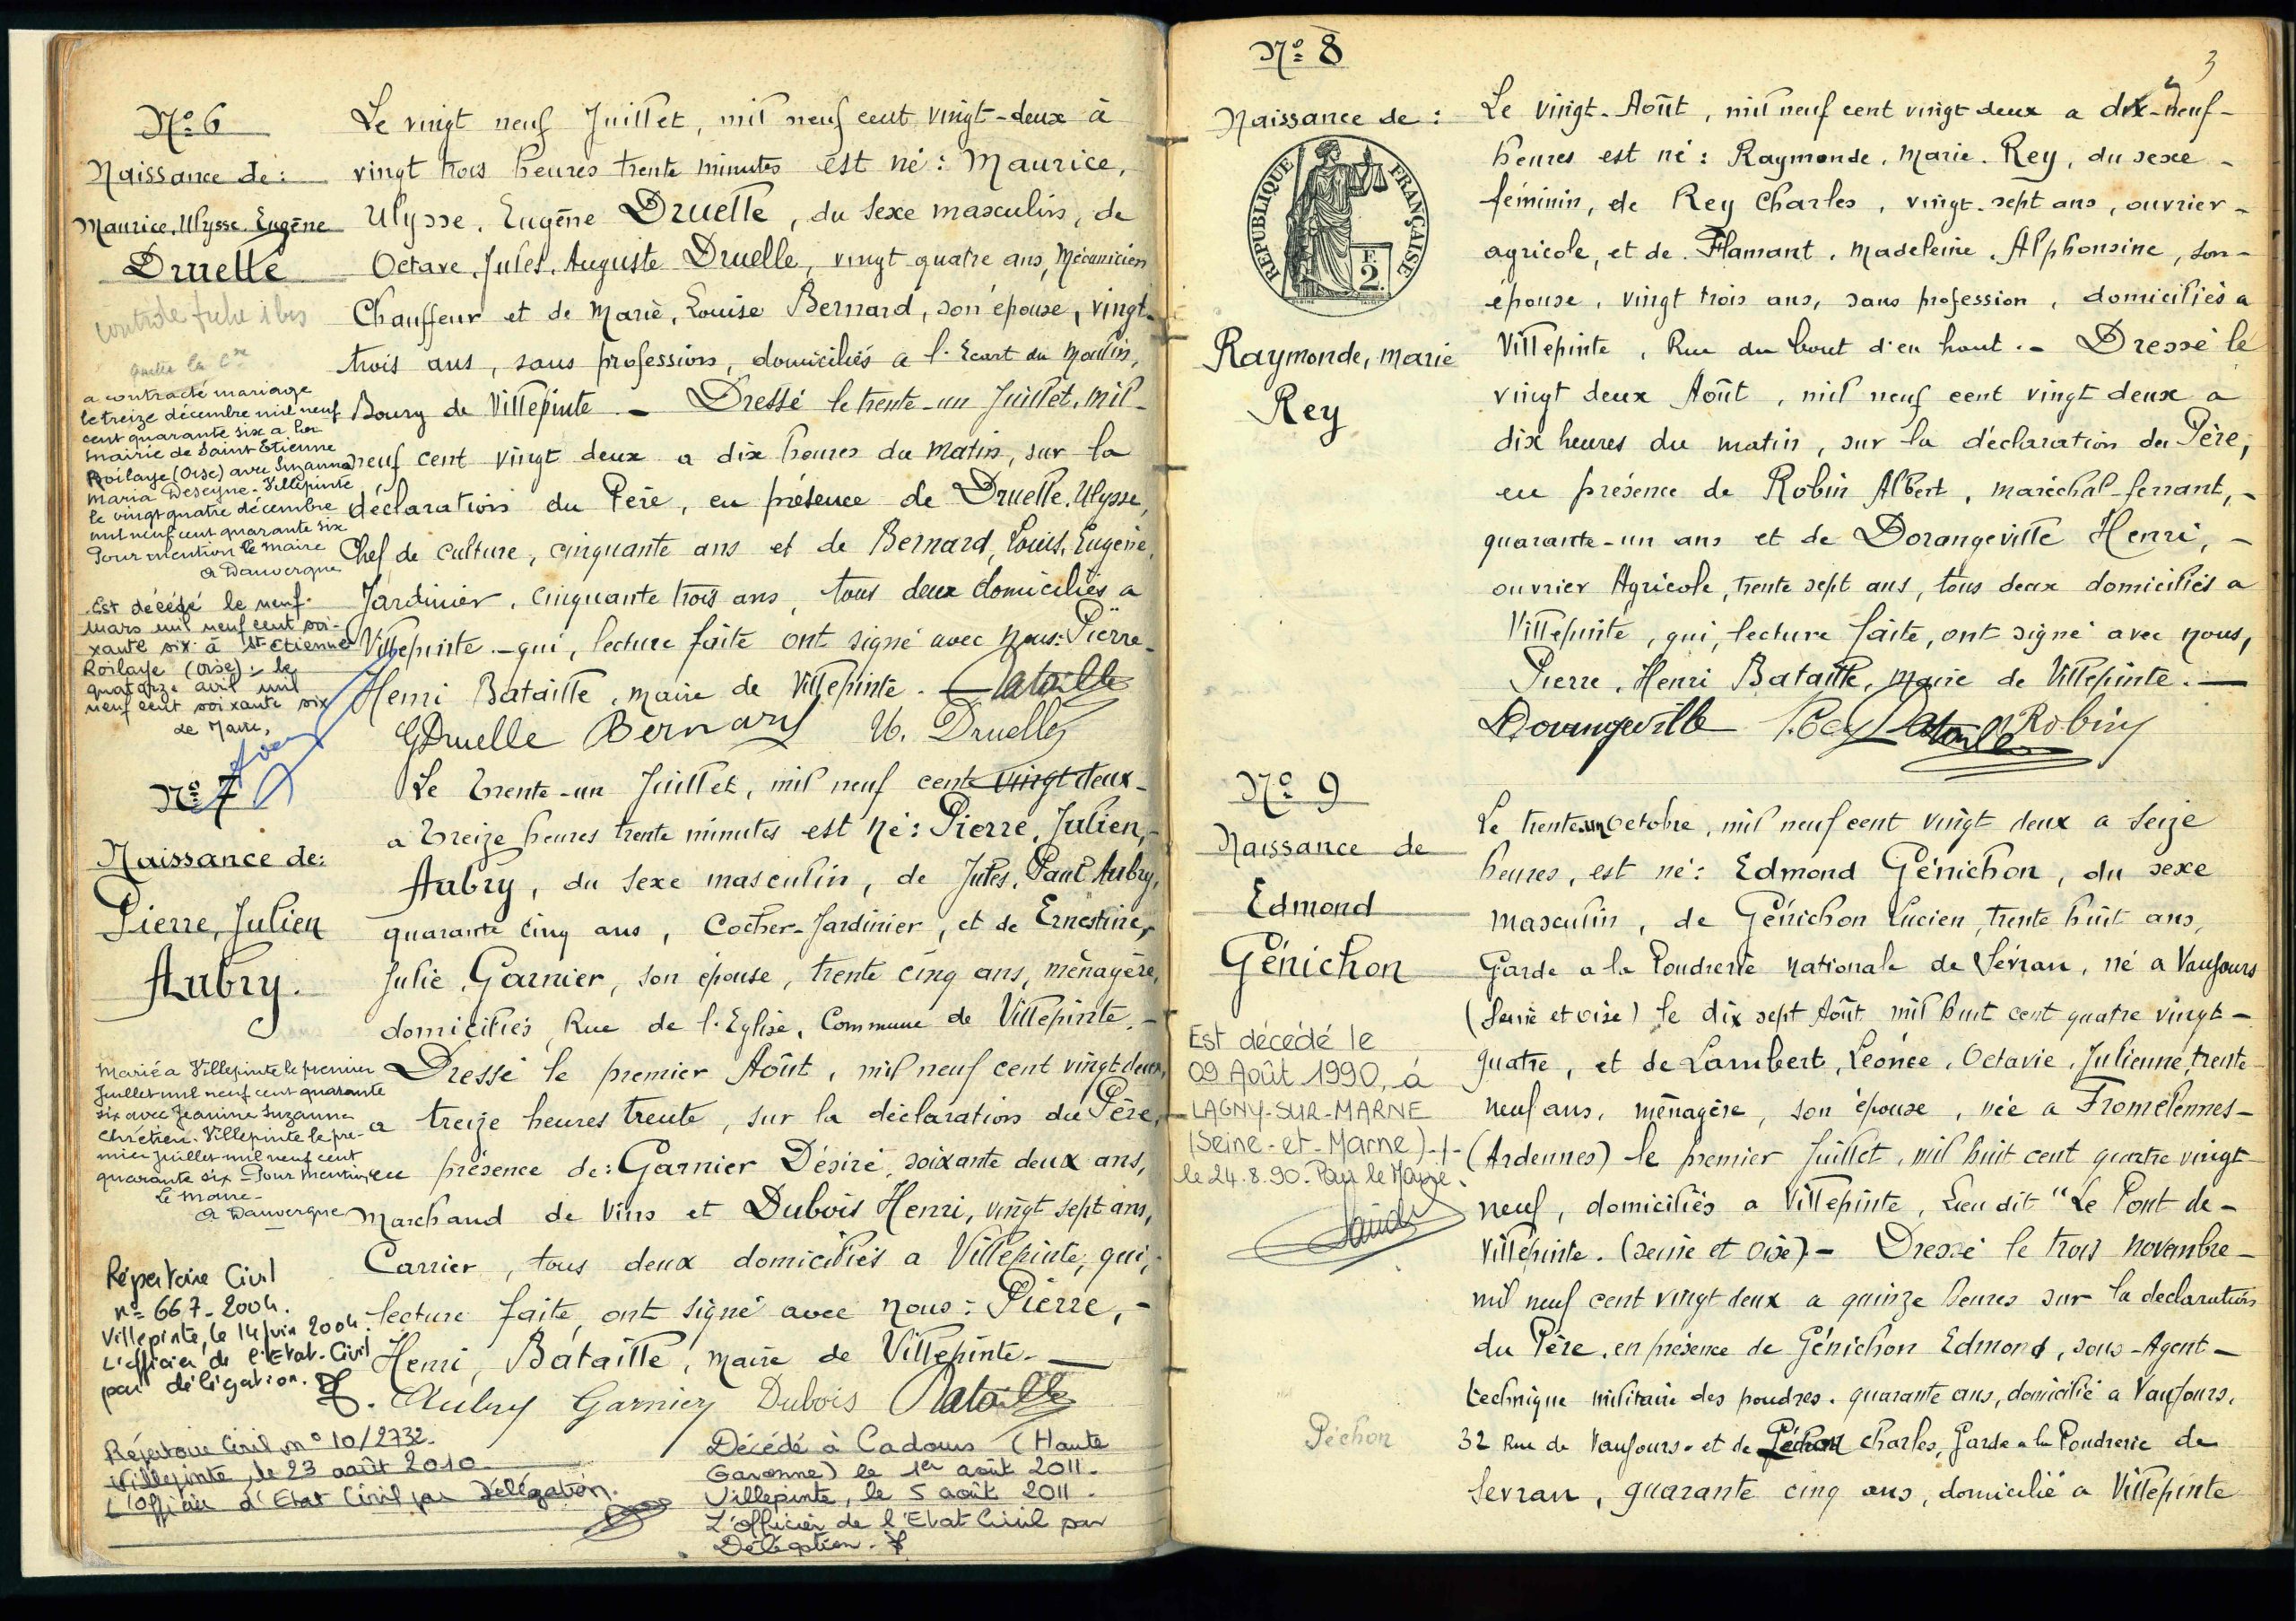 N° 6
Naissance de :
Maurice, Ulysse. Eugène
Druelle
controle fiche 1 bis
a contracté mariage
le treize décembre mil neuf
cent quarante six a la
mairie de Saint Etienne
Roilaye (Oise) avec Suzanne
Maria Deseyne. Villepinte
le vingt quatre décembre
mil neuf cent quarante six
Pour mention le maire
A Dauvergne
Est décédé le neuf
mars mil neuf cent soi-
xante six à St Etienne
Roilaye (Oise) : le
quatorze avril mil
neuf cent soixante six
Le Maire,
Le vingt neuf Juillet, mil neuf cent vingt-deux à
vingt trois heures trente minutes est né : Maurice,
Ulysse. Eugène Druelle, du sexe masculin, de
Octave, Jules, Auguste Druelle, vingt quatre ans, Mécanicien
Chauffeur et de Marie, Louise Bernard, son épouse, vingt-
trois ans, sans profession, domiciliés a l'Ecart du Moulin,
Bourg de Villepinte - Dressé le trente-un Juillet, mil-
neuf cent vingt deux a dix heures du matin, sur la
déclaration du Père, en présence de Druelle. Ulysse,
Chef de culture, cinquante ans et de Bernard, Louis, Eugène,
Jardinier, cinquante trois ans, tous deux domiciliés a
Villepinte. - qui, lecture faite ont signé avec Nous : Pierre
Henri Bataille, maire de Villepinte. Bataille
Druelle Bernard U. Druelle
N° 7
Naissance de :
Pierre, Julien
Aubry.
Marié a Villepinte le premier
Juillet mil neuf cent quarante
six avec Jeanine Suzanne
Chrétien. Villepinte le pre-
mier juillet mil neuf cent
quarante six - Pour mention
le Maire -
A Dauvergne
Répertoire Civil
n° 667-2004.
Villepinte, le 14 juin 2004.
L'officier de l'Etat-Civil
par délégation.
Le trente-un Juillet, mil neuf cent vingt deux-
a treize heures trente minutes est né : Pierre, Julien,-
Aubry, du sexe masculin, de Jules, Paul Aubry,
quarante cinq ans, Cocher-Jardinier, et de Ernestine,
Julie, Garnier, son épouse, trente cinq ans, ménagère,
domiciliés Rue de l'Eglise, Commune de Villepinte. -
Dressé le premier Août, mil neuf cent vingt deux,
a treize heures trente, sur la déclaration du Père,
en présence de : Garnier Désiré, soixante deux ans,
Marchand de Vins et Dubois Henri, vingt sept ans,
Carrier, tous deux domiciliés a Villepinte, qui,
lecture faite, ont signé avec nous : Pierre, -
Henri, Bataille, maire de Villepinte. -
Aubry Garnier Dubois Bataille
Répertoire Civil n° 10/2732.
Villepinte, le 23 août 2010
L'officier d'Etat Civil par Délégation.
Décédé à Cadours (Haute
Garonne) le 1er août 2011.
Villepinte, le 5 août 2011.
L'officier de l'Etat Civil par
Délégation.
3
N° 8
Naissance de :
REPUBLIQUE FRANÇAISE
F.
2.
Raymonde, Marie
Rey
Le vingt-Août, mil neuf cent vingt deux a dix-neuf-
heures est né : Raymonde, Marie. Rey, du sexe -
féminin, de Rey Charles, vingt-sept ans, ouvrier -
agricole, et de Flamant, Madeleine, Alphonsine, son -
épouse, vingt trois ans, sans profession, domiciliés a
Villepinte, Rue du bout d'en haut. - Dressé le
vingt deux Août, mil neuf cent vingt deux a
dix heures du matin, sur la déclaration du Père,
en présence de Robin Albert, maréchal-ferrant, -
quarante-un ans et de Dorangeville Henri, -
ouvrier Agricole, trente sept ans, tous deux domiciliés a
Villepinte, qui, lecture faite, ont signé avec nous,
Pierre, Henri Bataille, maire de Villepinte. -
Dorangeville Rey Bataille A Robin
N° 9
Naissance de
Edmond
Génichon
Est décédé le
09 Août 1990, à
LAGNY-SUR-MARNE
(Seine-et-Marne)-/-
le 24.8.90. Pour le Maire.
Péchon
Le trente un Octobre, mil neuf cent vingt deux a seize
heures, est né : Edmond Génichon, du sexe
masculin, de Génichon Lucien, trente huit ans,
Garde a la Poudrerie Nationale de Sévran, né a Vaujours
(Seine et Oise) le dix sept Août mil huit cent quatre vingt -
quatre, et de Lambert, Léonée, Octavie, Julienne, trente
neuf ans, ménagère, son épouse, née a Fromelennes-
(Ardennes) le premier Juillet, mil huit cent quatre vingt
neuf, domiciliés a Villepinte, Lieu dit "Le Pont de -
Villepinte. (Seine et Oise) - Dressé le trois novembre -
mil neuf cent vingt deux a quinze heures sur la déclaration
du Père, en présence de Génichon Edmond, sous-Agent -
technique militaire des poudres. quarante ans, domicilié a Vaujours,
32 Rue de Vaujours. et de Péchon Charles, Garde a la Poudrerie de
Sevran, quarante cinq ans, domicilié a Villepinte